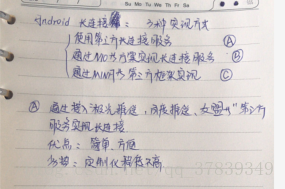 Su Mo Tu We Th Fr Sa
Android 长连接 : 3种实现方式
使用第三方长连接服务 Ⓐ
通过NIO等方案实现长连接服务 Ⓑ
通过MINA等第三方框架实现 Ⓒ
Ⓐ 通过接入"极光推送、百度推送、友盟"等第三方
服务实现长连接
优点: 简单、方便
定制化程度不高
37839349